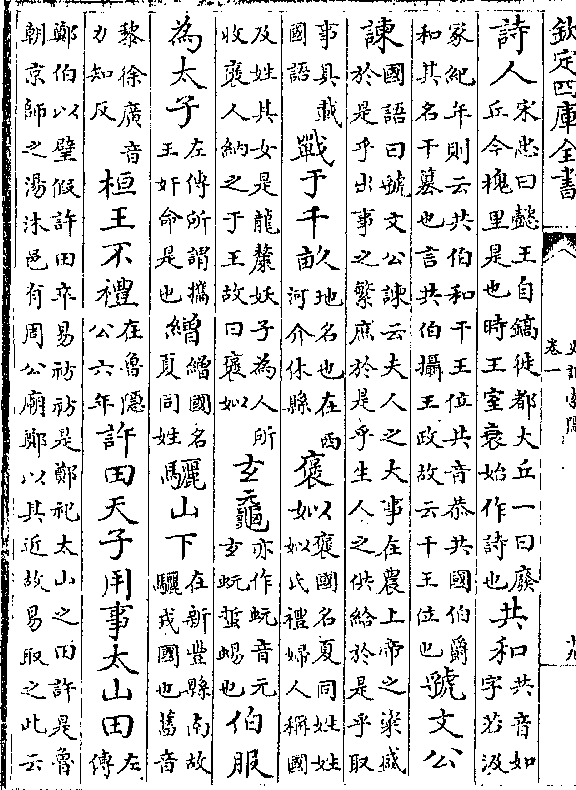 欽定四庫全書
史記索隱
卷一
十九
詩人宋忠曰懿王自鎬徙都犬丘一曰廢丘今槐里是也時王室衰始作詩也共和共音如字若汲
冢紀年則云共伯和干王位共音恭共國伯爵和其名干簒也言共伯攝王政故云干王位也虢文公
諫國語曰虢文公諫云夫人之大事在農上帝之粢盛於是乎出事之繁庶於是乎生人之供給於是乎取
事具載國語戰于千畝地名也在西河介休縣褒姒褒國名夏同姓姓姒氏禮婦人稱國
及姓其女是龍漦妖子為人所收褒人納之于王故曰褒姒玄黿亦作蚖音元玄蚖蜇蜴也伯服
為太子左傳所謂攜王奸命是也繒繒國名夏同姓驪山下在新豐縣南故驪戎國也舊音
黎徐廣音力知反桓王不禮在魯隱公六年許田天子用事太山田左傳
鄭伯以璧假許田卒易祊祊是鄭祀太山之田許是魯朝京師之湯沐邑有周公廟鄭以其近故易取之此云